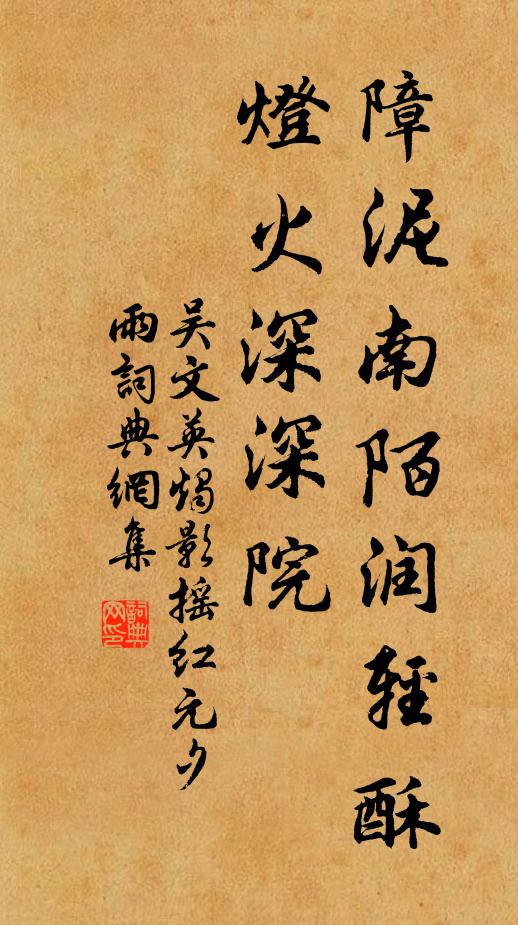 障泥南陌润輕酥
燈火深深院
吴文英燭影摇红元夕
雨詞典網集
詞典网印